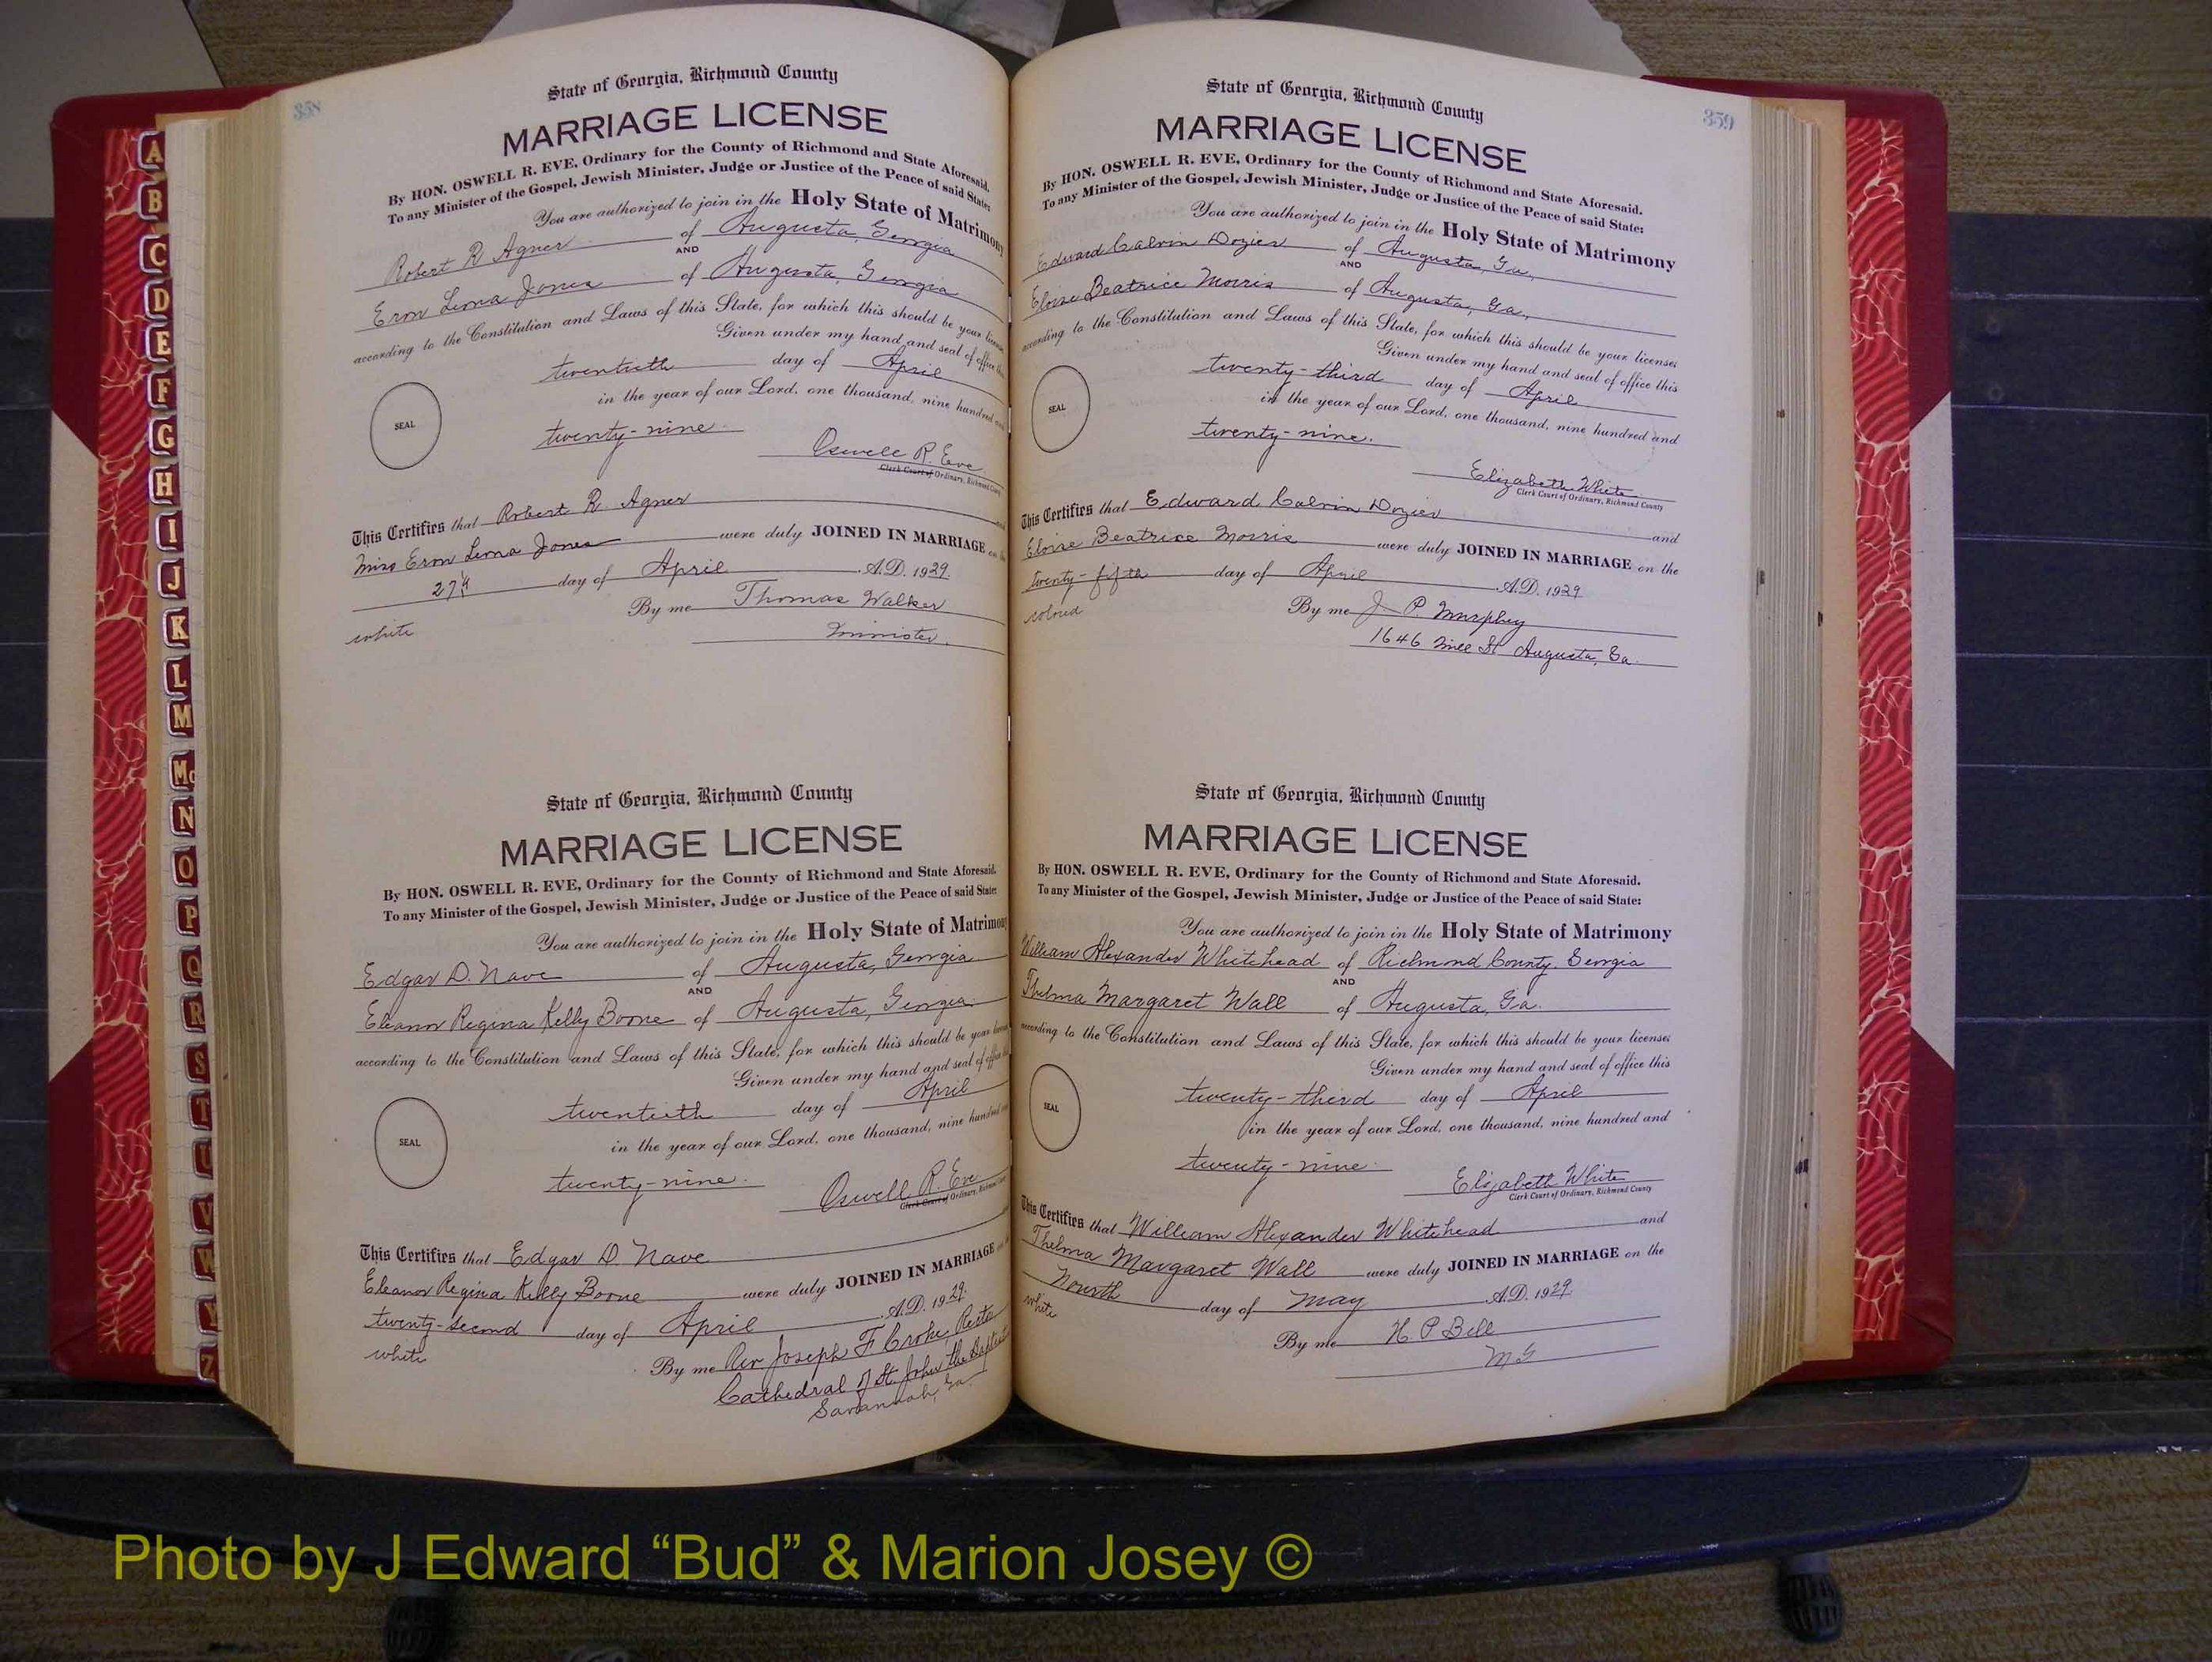 358
State of Georgia, Richmond County
MARRIAGE LICENSE
By HON. OSWELL R. EVE, Ordinary for the County of Richmond and State Aforesaid.
To any Minister of the Gospel, Jewish Minister, Judge or Justice of the Peace of said State:
You are authorized to join in the Holy State of Matrimony
Robert R Agner of Augusta, Georgia
AND
Erom Lema Jones of Augusta, Georgia
according to the Constitution and Laws of this State, for which this should be your license
Given under my hand and seal of office
twentieth day of April
SEAL
in the year of our Lord, one thousand, nine hundred
twenty-nine.
Oswell R. Eve
Clerk Court of Ordinary, Richmond County
This Certifies that Robert R. Agner
Miss Erom Lema Jones were duly JOINED IN MARRIAGE on
27th day of April A.D. 1929.
By me Thomas Walker
white
minister.
State of Georgia, Richmond County
MARRIAGE LICENSE
By HON. OSWELL R. EVE, Ordinary for the County of Richmond and State Aforesaid.
To any Minister of the Gospel, Jewish Minister, Judge or Justice of the Peace of said State:
You are authorized to join in the Holy State of Matrimony
Edgar D. Nave of Augusta, Georgia
AND
Eleanor Regina Kelly Boone of Augusta, Georgia
according to the Constitution and Laws of this State, for which this should be your
Given under my hand and seal of office
twentieth day of April
SEAL
in the year of our Lord, one thousand, nine hundred
twenty-nine.
Oswell R. Eve
Clerk Court of Ordinary, Richmond County
This Certifies that Edgar D. Nave
Eleanor Regina Kelly Boone were duly JOINED IN MARRIAGE
twenty-second day of April A.D. 1929.
white
By me Rev Joseph F Croke,
Cathedral of St. John the Baptist
Savannah, Ga.
359
State of Georgia, Richmond County
MARRIAGE LICENSE
By HON. OSWELL R. EVE, Ordinary for the County of Richmond and State Aforesaid.
To any Minister of the Gospel, Jewish Minister, Judge or Justice of the Peace of said State:
You are authorized to join in the Holy State of Matrimony
Edward Calvin Dozier of Augusta, Ga.,
AND
Eloise Beatrice Morris of Augusta, Ga.,
according to the Constitution and Laws of this State, for which this should be your license:
Given under my hand and seal of office this
twenty-third day of April
SEAL
in the year of our Lord, one thousand, nine hundred and
twenty-nine.
Elizabeth White
Clerk Court of Ordinary, Richmond County
This Certifies that Edward Calvin Dozier and
Eloise Beatrice Morris were duly JOINED IN MARRIAGE on the
twenty-fifth day of April A.D. 1929
colored
By me J P Murphey
1646 Mill St Augusta, Ga.
State of Georgia, Richmond County
MARRIAGE LICENSE
By HON. OSWELL R. EVE, Ordinary for the County of Richmond and State Aforesaid.
To any Minister of the Gospel, Jewish Minister, Judge or Justice of the Peace of said State:
You are authorized to join in the Holy State of Matrimony
William Alexander Whitehead of Richmond County, Georgia
AND
Thelma Margaret Wall of Augusta, Ga.
according to the Constitution and Laws of this State, for which this should be your license:
Given under my hand and seal of office this
twenty-third day of April
SEAL
in the year of our Lord, one thousand, nine hundred and
twenty-nine.
Elizabeth White
Clerk Court of Ordinary, Richmond County
This Certifies that William Alexander Whitehead and
Thelma Margaret Wall were duly JOINED IN MARRIAGE on the
Fourth day of May A.D. 1929.
white
By me H P Bell
M G
A
B
C
D
E
F
G
H
I
J
K
L
M
Mc
N
O
P
Q
R
S
T
U
V
W
Y
Z
Photo by J Edward “Bud” & Marion Josey ©